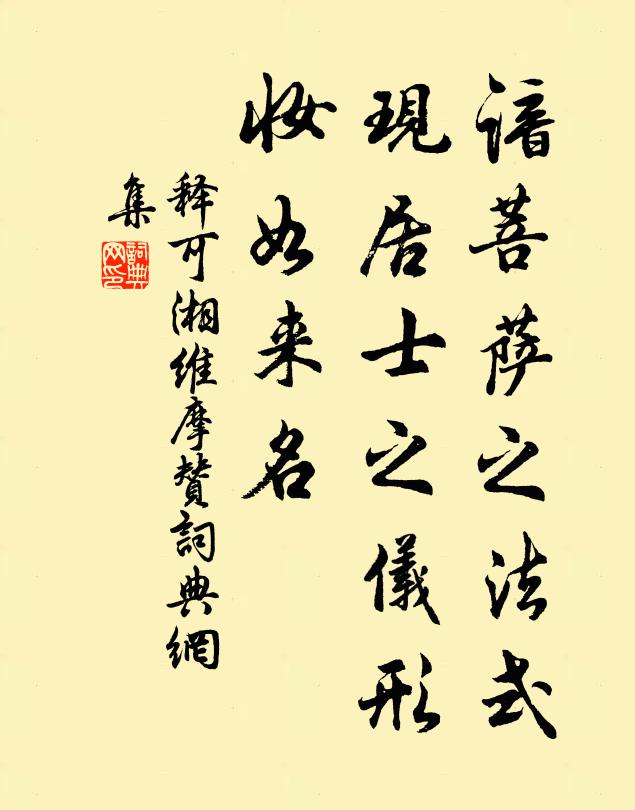 谙菩萨之法式
現居士之儀形
妆如来名
释可湘維摩贊詞典網
集
詞典网印